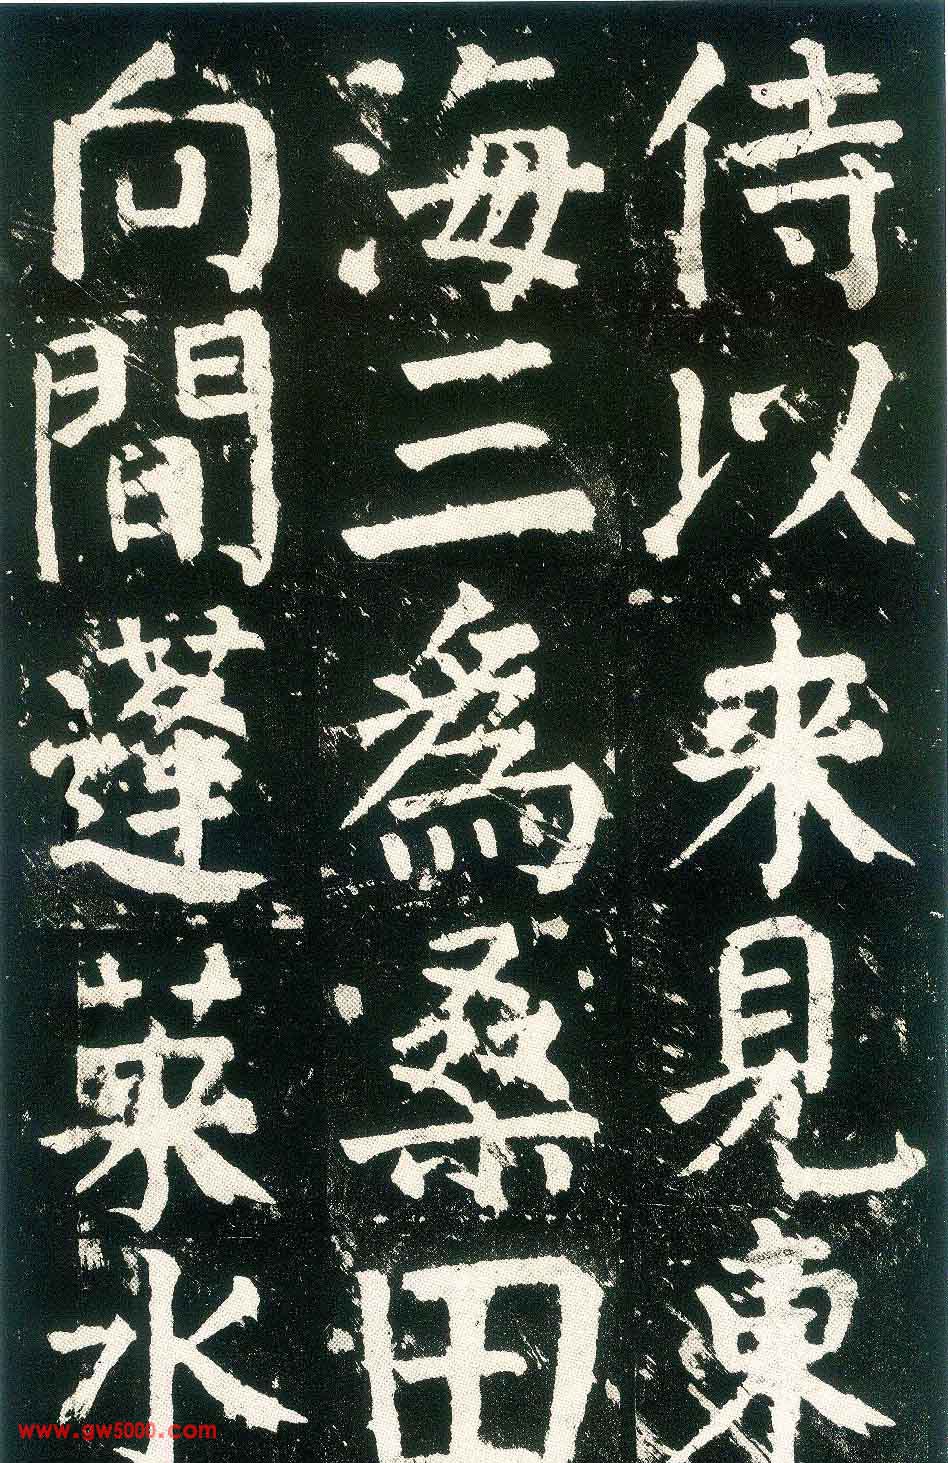 侍以来見東
海三爲桑田
向間蓬莱水
www.gw5000.com